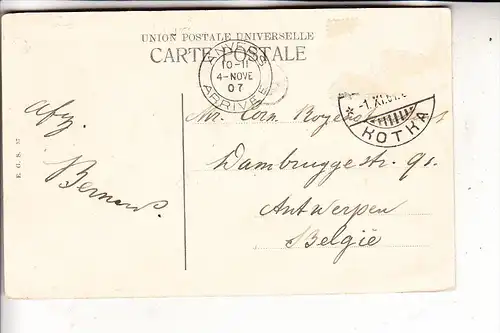 UNION POSTALE UNIVERSELLE
CARTE POSTALE
ANVERS
10-11
4-NOVE
07
ARRIVÉE
-1.XI.07.
KOTKA
Mr. Corn.
Dambruggestr. 91.
Antwerpen
België
E. G. S. 57